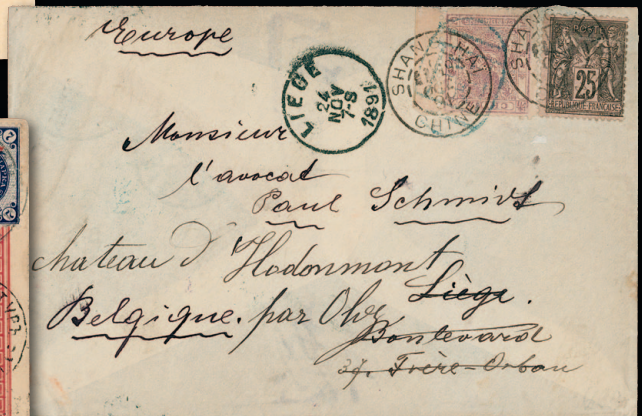 Europe
LIEGE
24
NOV
7-8
1891
SHANG-HAI
CHINE
SHANG-HAI
25
REPUBLIQUE FRANÇAISE
Monsieur
l'avocat
Paul Schmidt
chateau d'Hodonmont
Liège.
Belgique. par
Boulevard
27. Frère-Orban